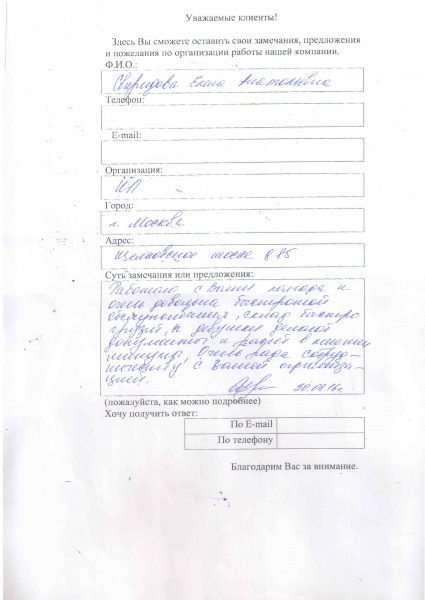 Уважаемые клиенты!
Здесь Вы сможете оставить свои замечания, предложения
и пожелания по организации работы нашей компании.
Ф.И.О.:
Свиридова Елена Анатольевна
Телефон:
E-mail:
Организация:
ИП
Город:
г. Москва
Адрес:
Щелковское шоссе д 85
Суть замечания или предложения:
Работаю с Вами полгода и
очень довольна быстротой
обслуживания, склад быстро
грузят, а девушки делают
документы и расчёт в считанные
минуты, очень рада сотруд-
ничеству с Вашей организа-
цией.
30.08.16г.
(пожалуйста, как можно подробнее)
Хочу получить ответ:
По E-mail
По телефону
Благодарим Вас за внимание.